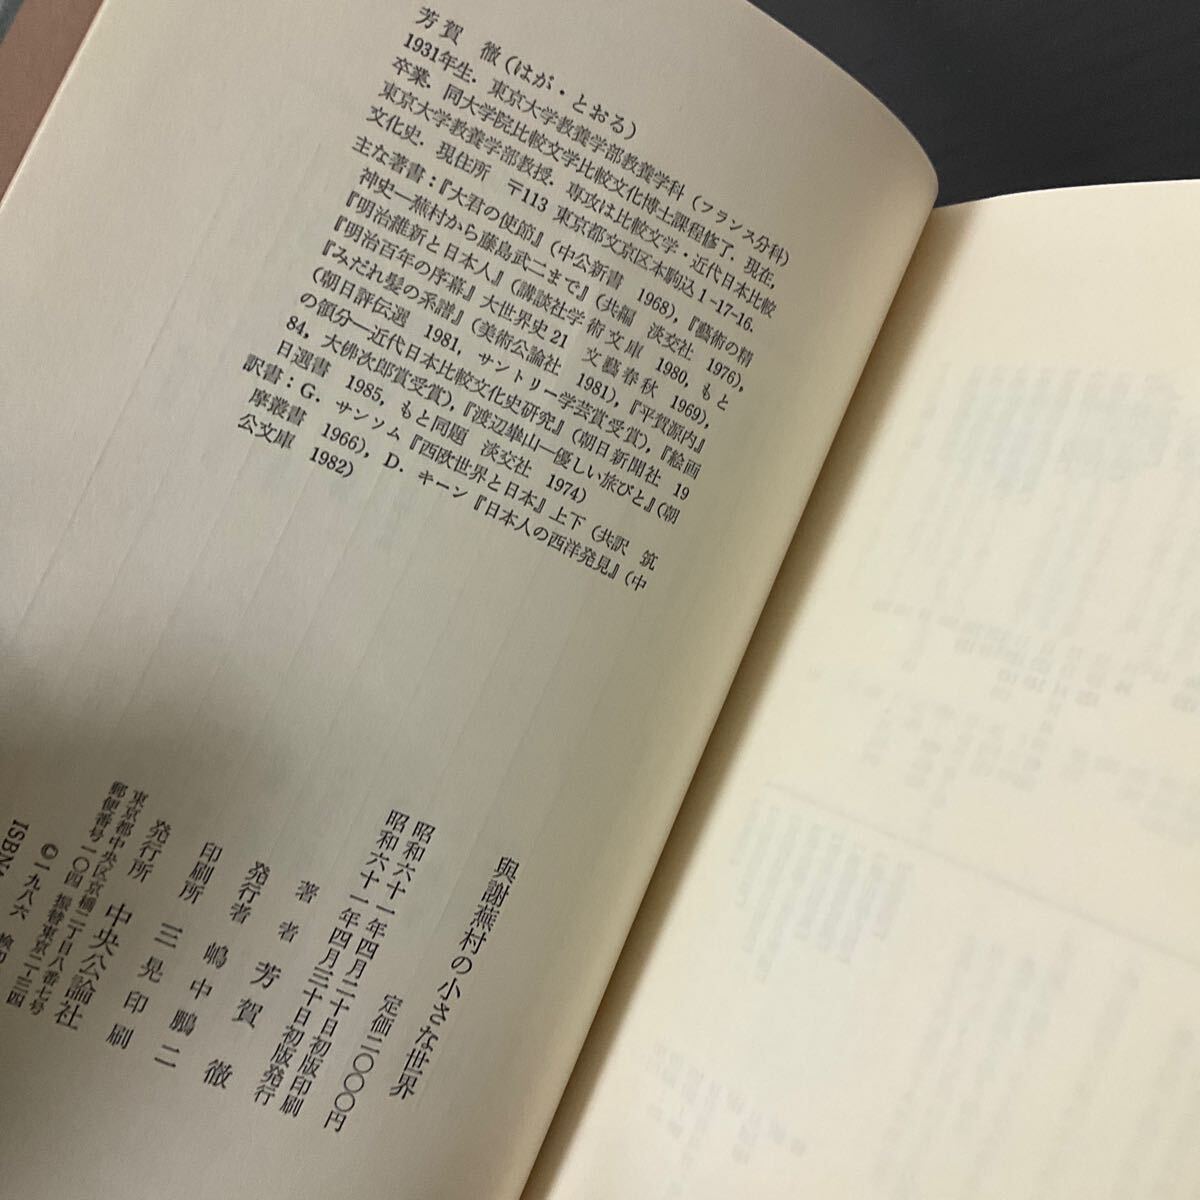 芳賀 徹(はが・とおる)
1931年生.東京大学教養学部教養学科(フランス分科)
卒業.同大学院比較文学比較文化博士課程修了.現在,
東京大学教養学部教授.専攻は比較文学・近代日本比較
文化史.現住所 〒113 東京都文京区本駒込1-17-16.
主な著書:『大君の使節』(中公新書 1968),『藝術の精
神史―蕪村から藤島武二まで』(共編 淡交社 1976),
『明治維新と日本人』(講談社学術文庫 1980,もと
『明治百年の序幕』大世界史21 文藝春秋 1969),
『みだれ髪の系譜』(美術公論社 1981),『平賀源内』
(朝日評伝選 1981,サントリー学芸賞受賞),『絵画
の領分―近代日本比較文化史研究』(朝日新聞社 19
84,大佛次郎賞受賞),『渡辺崋山―優しい旅びと』(朝
日選書 1985,もと同題 淡交社 1974)
訳書:G.サンソム『西欧世界と日本』上下(共訳 筑
摩叢書 1966),D.キーン『日本人の西洋発見』(中
公文庫 1982)
與謝蕪村の小さな世界
定価二〇〇〇円
昭和六十一年四月二十日初版印刷
昭和六十一年四月三十日初版発行
著者 芳賀 徹
発行者 嶋中鵬二
印刷所 三晃印刷
発行所 中央公論社
東京都中央区京橋二丁目八番七号
郵便番号一〇四 振替東京二-三四
©一九八六 検印
ISBN4